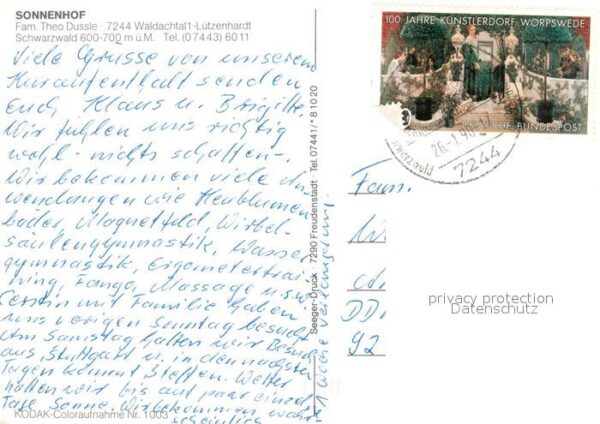 SONNENHOF
Fam. Theo Dussle 7244 Waldachtal 1-Lützenhardt
Schwarzwald 600-700 m ü.M. Tel. (07443) 6011
Viele Grüsse von unserem
Kuraufenthalt senden
Euch Klaus u. Brigitte.
Wir fühlen uns richtig
wohl - nichts schaffen -.
Wir bekommen viele An-
wendungen wie Heublumen-
bäder, Magnetfeld, Wirbel-
säulengymnastik, Wasser-
gymnastik, Ergometertrai-
ning, Fango, Massage u.s.w.
mit Familie haben
uns vorigen Sonntag besucht.
Am Samstag hatten wir Besuch
aus Stuttgart u. in den nächsten
Tagen kommt Steffen. Wetter
hatten wir bis auf paar einzel.
Tage Sonne. Wir bekommen wahr-
scheinlich
1 Woche Verlängerung.
KODAK-Coloraufnahme Nr. 1003
Seeger-Druck 7290 Freudenstadt Tel. 07441/*81020
100 JAHRE KÜNSTLERDORF WORPSWEDE
BUNDESPOST
26.-1.90
7244
Fam.
DD
92
privacy protection
Datenschutz